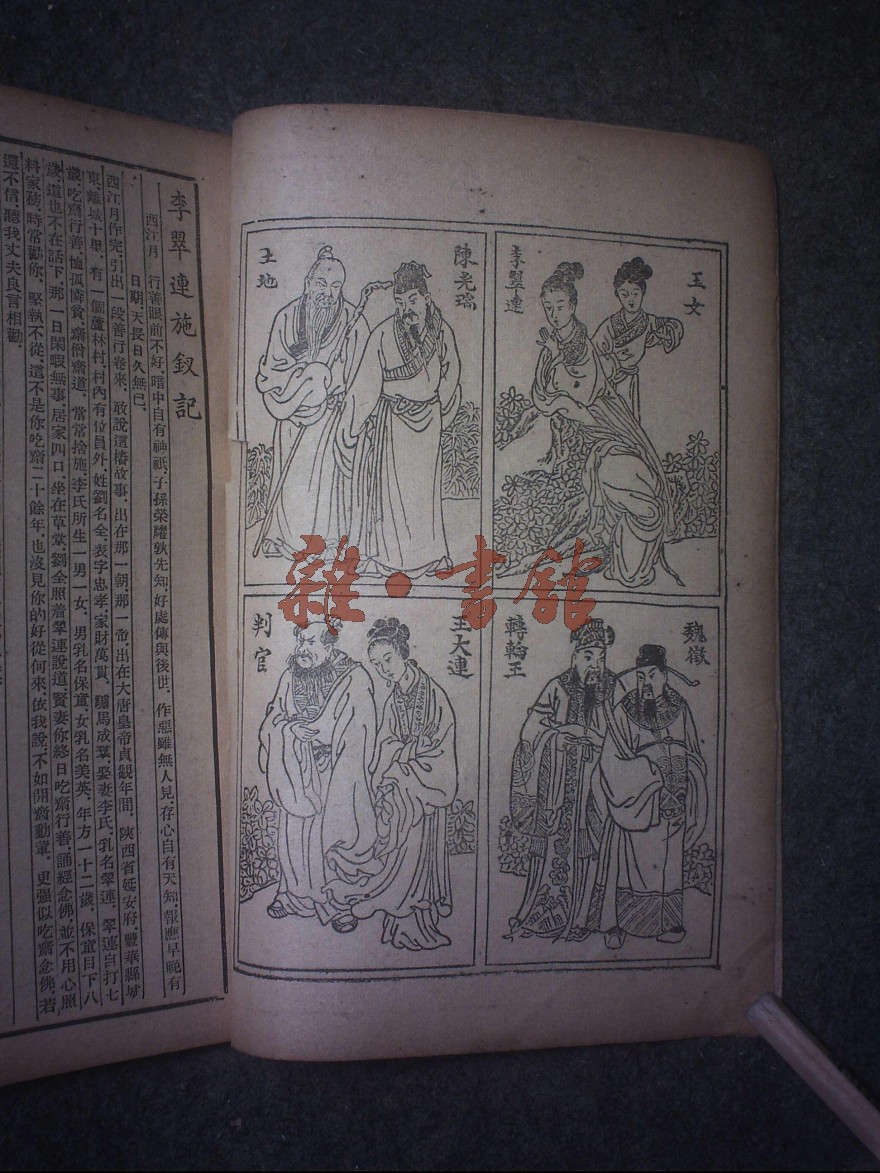 玉女
李翠連
陳光瑞
土地
魏徵
轉輪王
王大連
判官
雜·書館
李翠連施釵記
西江月 行善眼前不好，暗中自有神祇，子孫榮耀孰先知，好處傳與後世，作惡雖無人見，存心自有天知，報應早晚有
日期，天長日久無已，
西江月作完，引出一段善行卷來，敢說這樁故事，出在那一朝，那一帝，出在大唐皇帝貞觀年間，陝西省延安府，豐華縣城
東，離城十里，有一個蘆林村，村內有位員外，姓劉名全，表字忠孝，家財萬貫，騾馬成羣，娶妻李氏，乳名翠連，翠連自打七
歲，吃齋行善，恤孤憐貧，齋僧齋道，常常捨施，李氏所生一男一女，男乳名保童，女乳名美英，年方一十二歲，保童目下八
歲，這也不在話下，那一日閑暇無事，居家四口，坐在草堂，劉全照着翠連說道，賢妻你終日吃齋行善，誦經念佛，並不用心照
料家務，時常勸你，堅執不從，還不是你吃齋二十餘年，也沒見你的好從何來，依我說，不如開齋動葷，更強似吃齋念佛，若
還不信，聽我丈夫良言相勸，